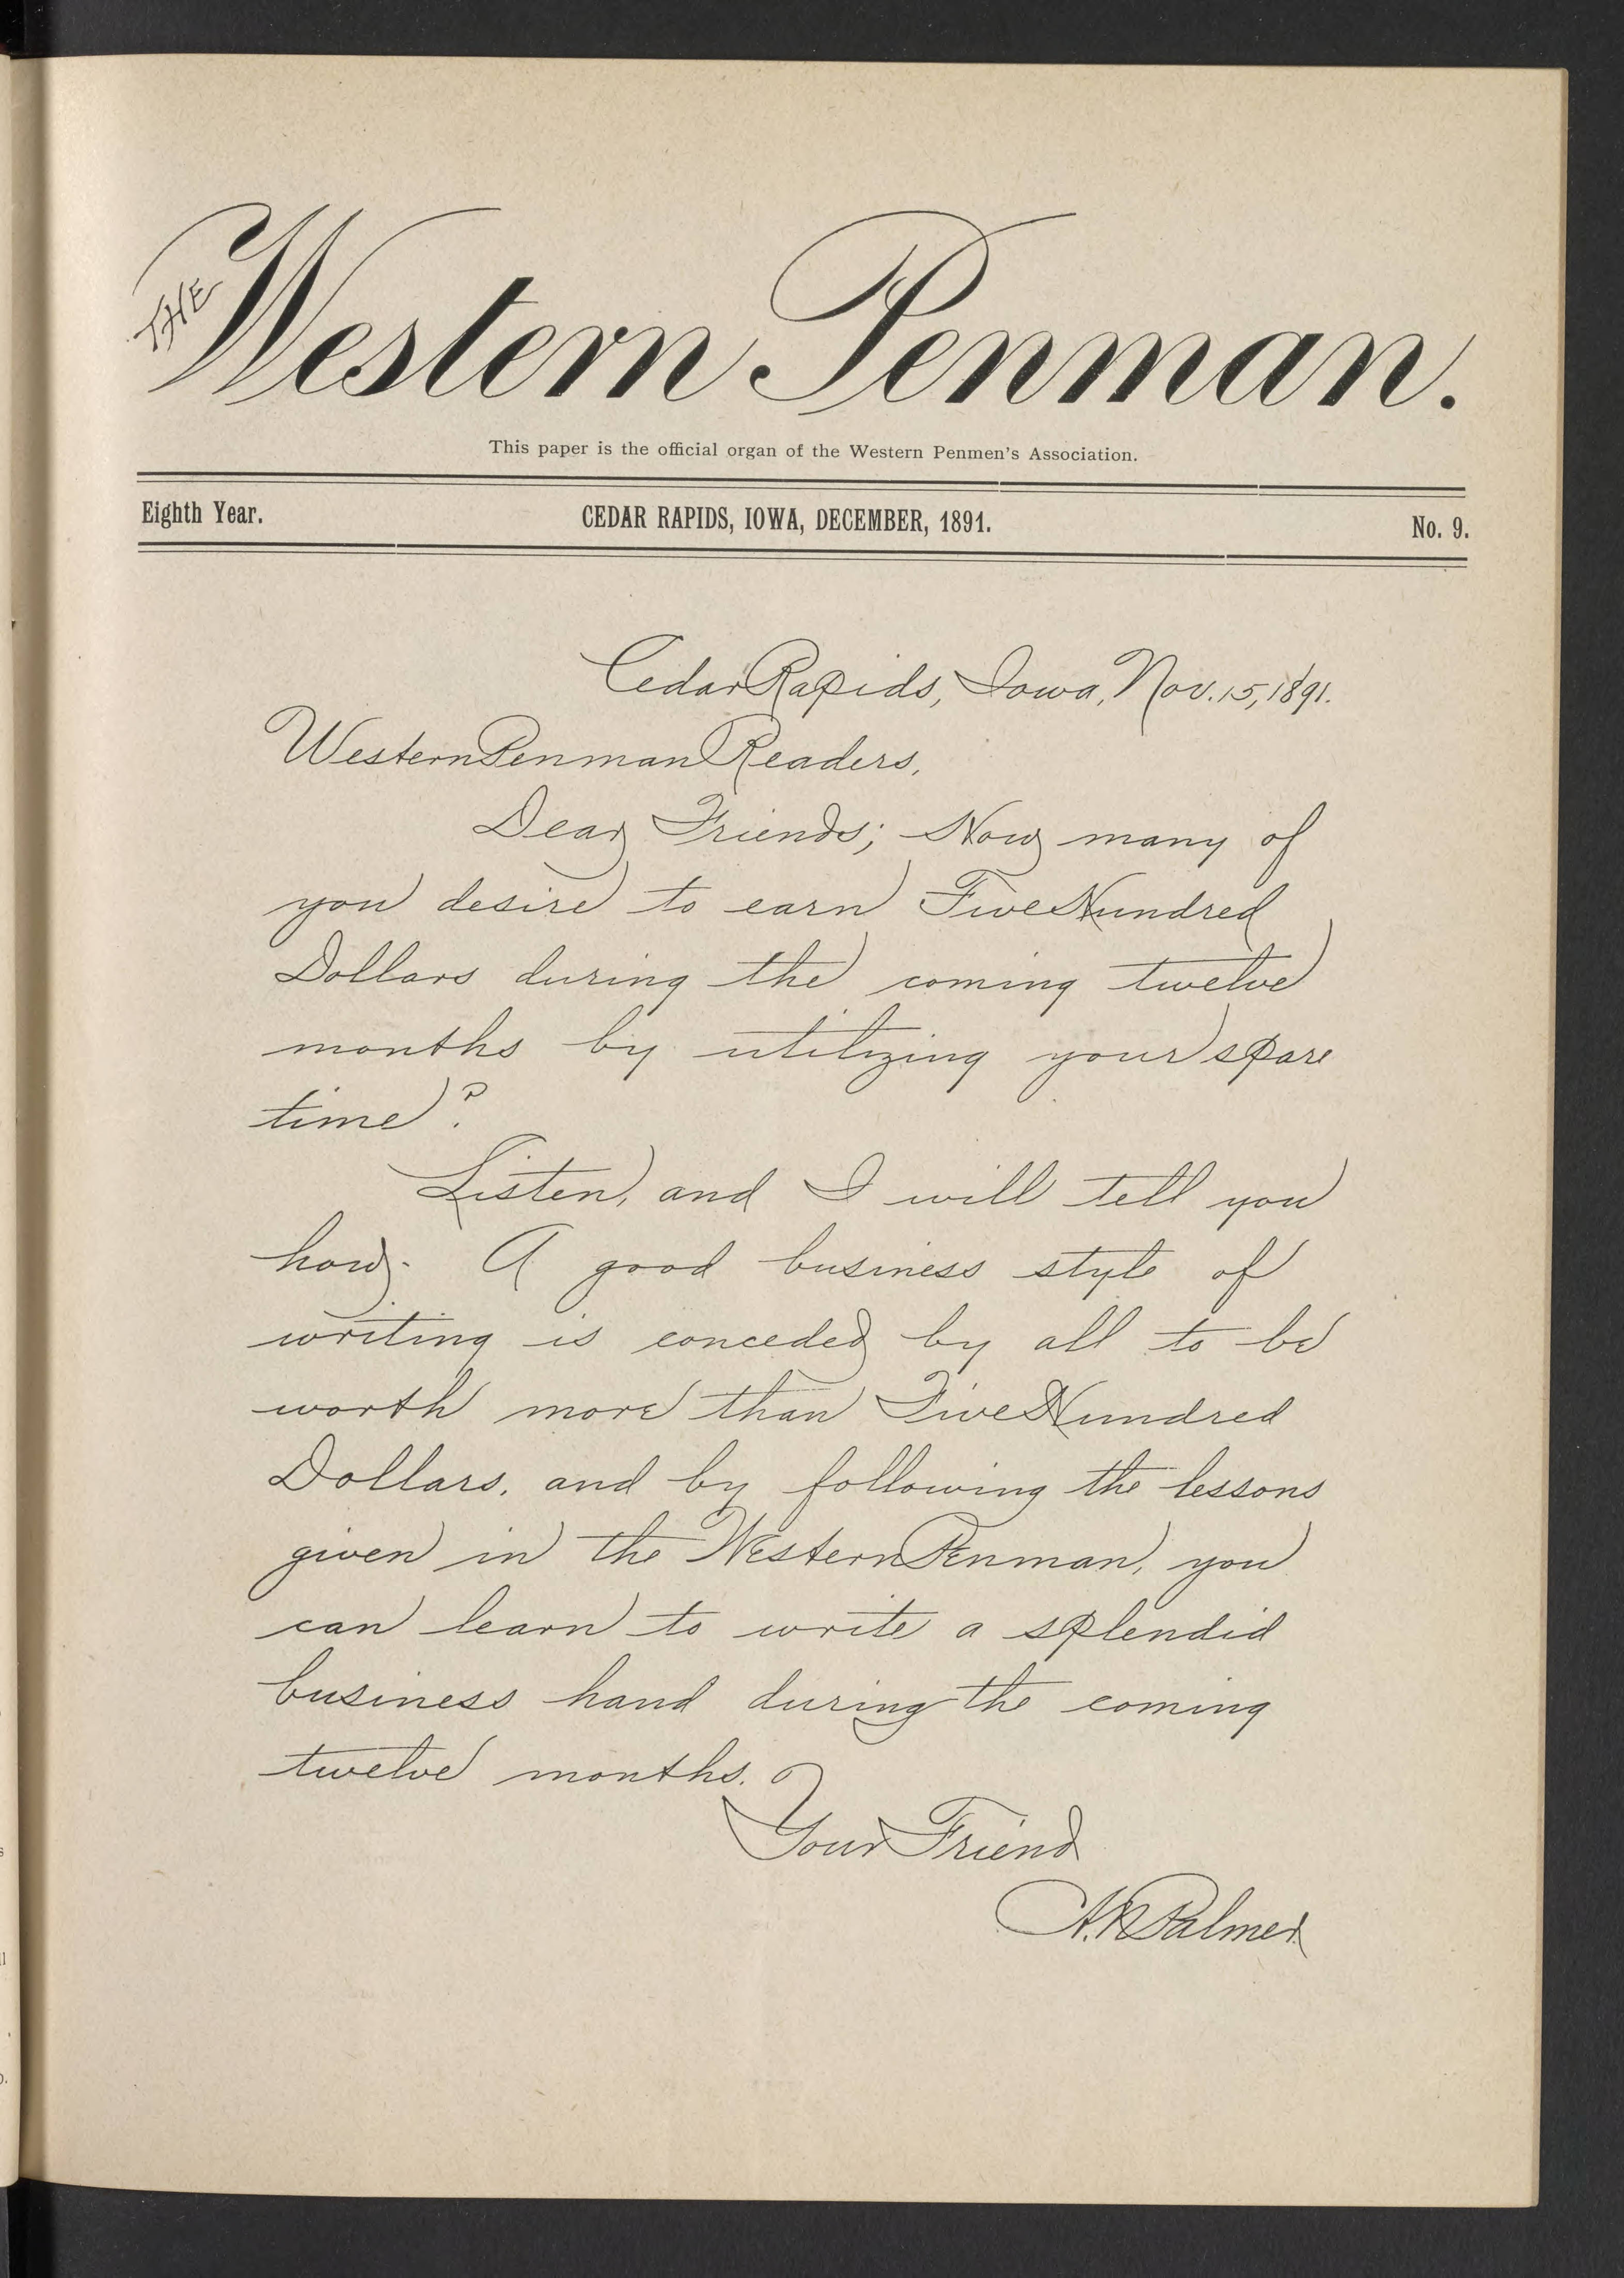 THE
Western Penman.
This paper is the official organ of the Western Penmen's Association.
Eighth Year. CEDAR RAPIDS, IOWA, DECEMBER, 1891. No. 9.
Cedar Rapids, Iowa, Nov. 15, 1891.
Western Penman Readers,
Dear Friends; How many of
you desire to earn Five Hundred
Dollars during the coming twelve
months by utilizing your spare
time?
Listen, and I will tell you
how. A good business style of
writing is conceded by all to be
worth more than Five Hundred
Dollars, and by following the lessons
given in the Western Penman, you
can learn to write a splendid
business hand during the coming
twelve months.
Your Friend
A.N. Palmer.